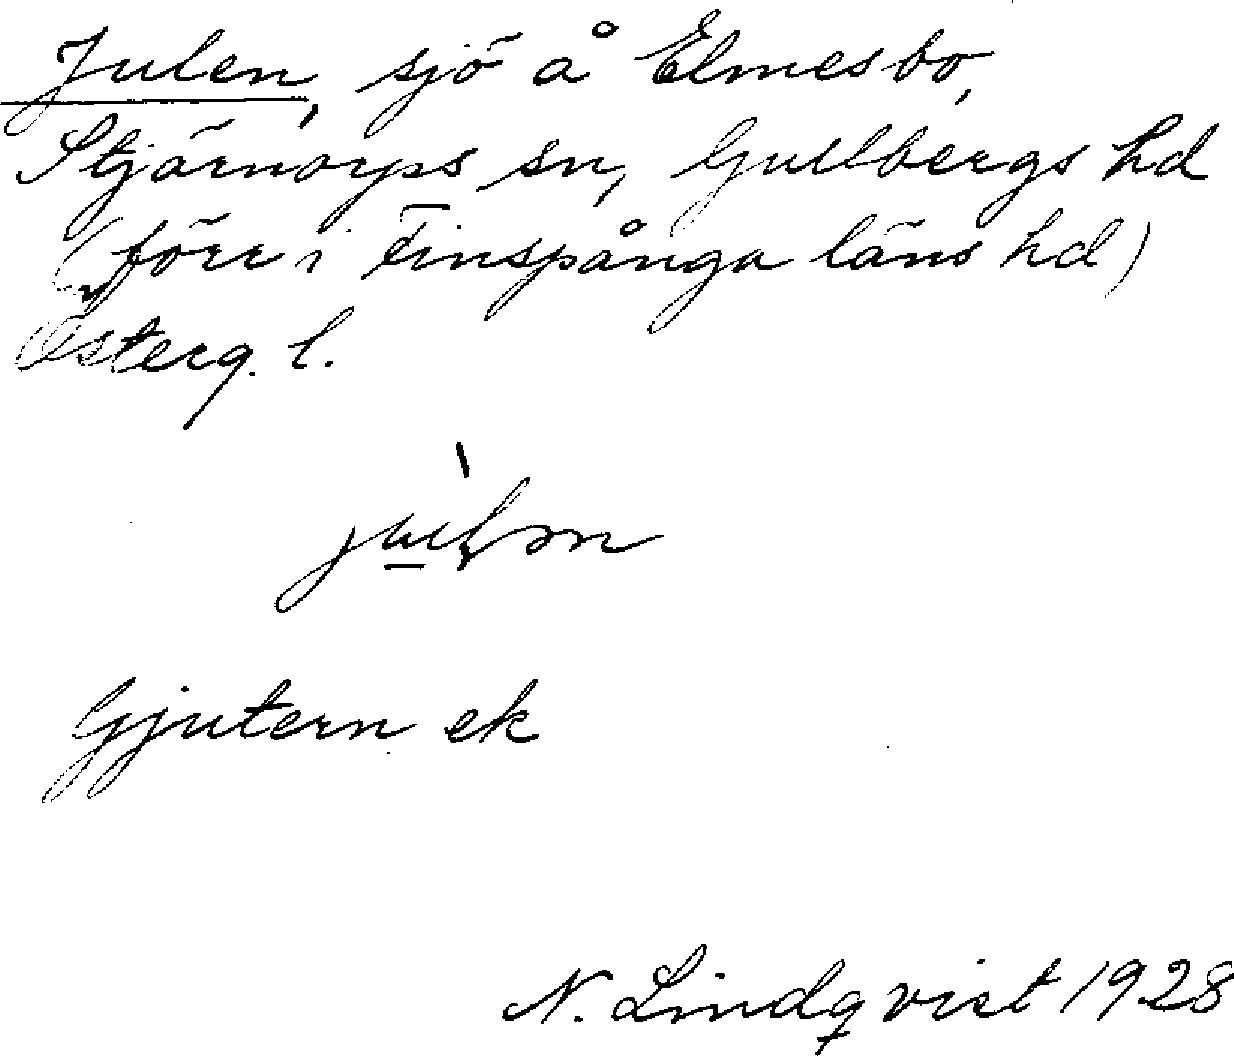 Julen, sjö å Elmesbo,
Stjärnorps sn, Gullbergs hd
(förr i Finspånga läns hd)
Österg. l.
Gjutern ek
N. Lindqvist 1928